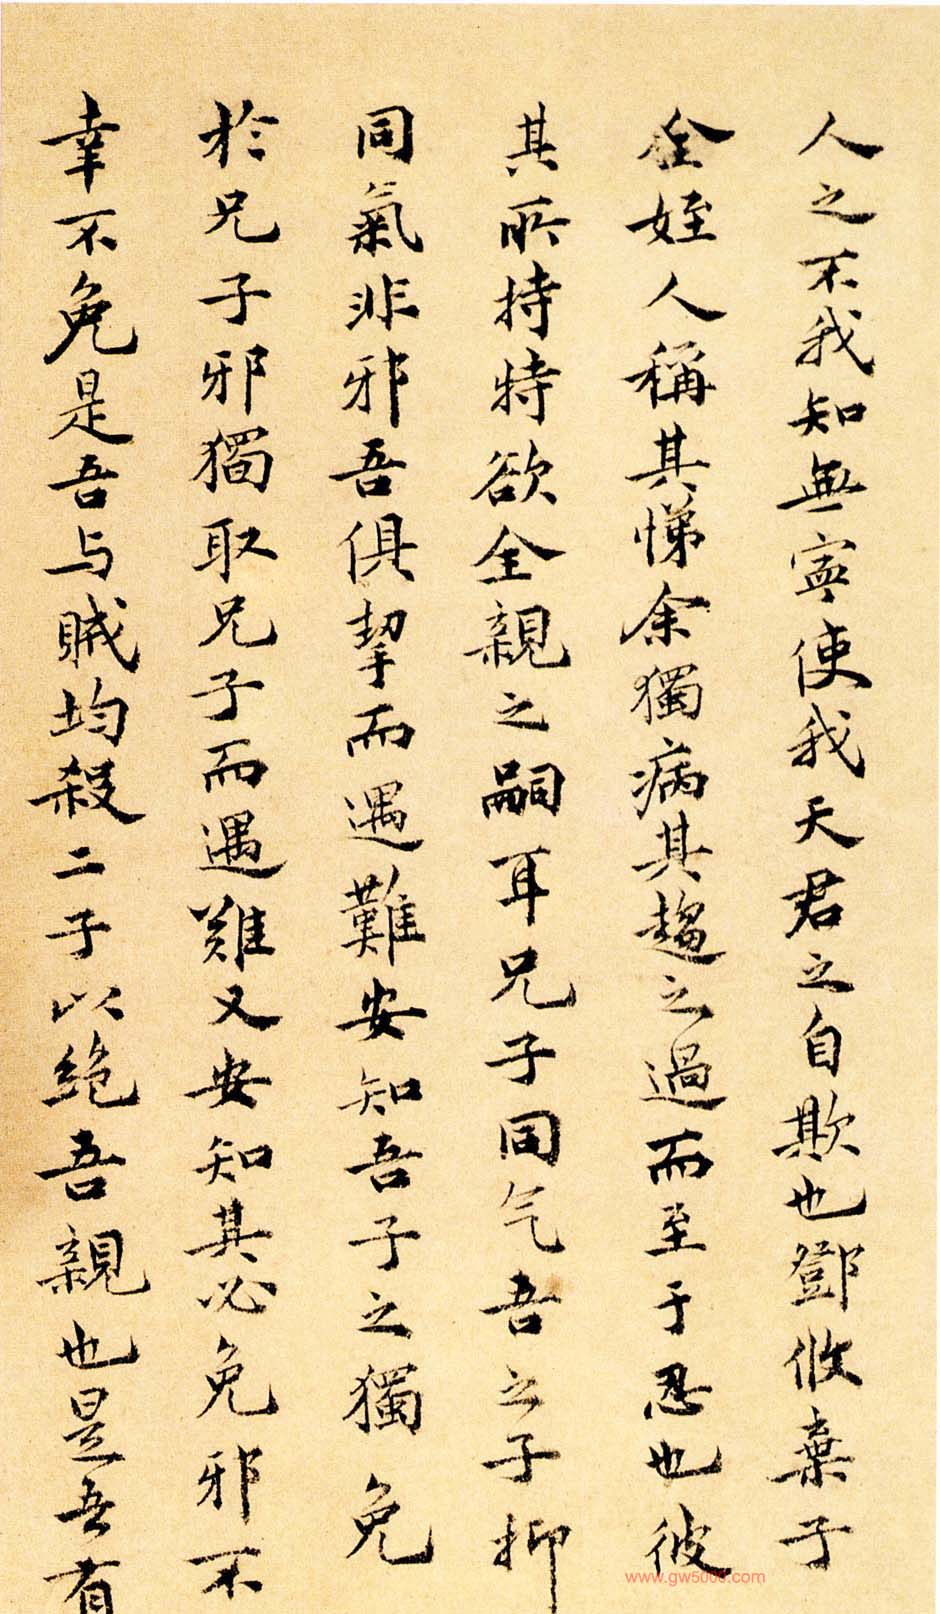 人之不我知無寧使我天君之自欺也鄧攸棄子
全姪人稱其悌余獨病其趨之過而至于忍也彼
其所持特欲全親之嗣耳兄子同气吾之子抑
同氣非邪吾俱挈而遇難安知吾子之獨免
於兄子邪獨取兄子而遇難又安知其必免邪不
幸不免是吾与賊均殺二子以絶吾親也是吾有
www.gw5000.com